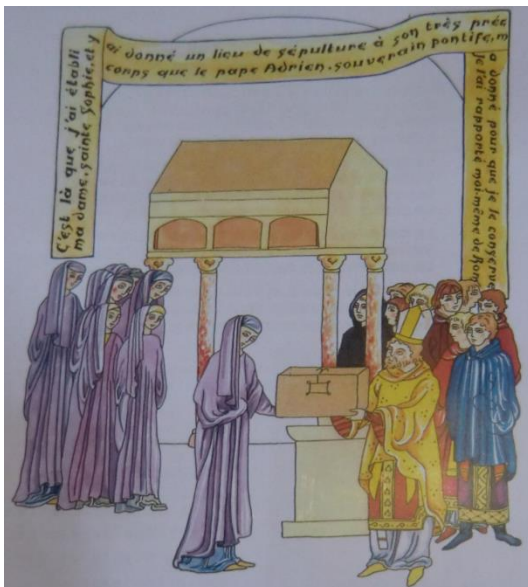 C'est là que j'ai établi
ma dame, sainte Sophie, et y
ai donné un lieu de sépulture à son très préc
corps que le pape Adrien, souverain pontife, m
a donné pour que je le conserve
je l'ai rapporté moi-même de Rome